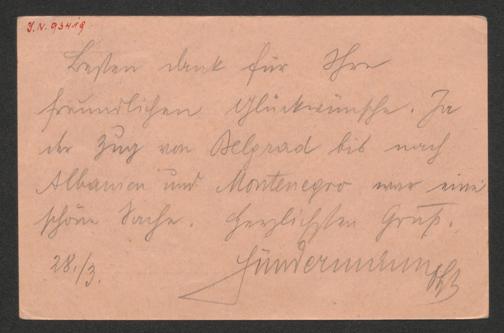 I.N. 93419
Besten dank für Ihre
freundlichen Glückwünsche. Ja
der Zug von Belgrad bis nach
Albanien und Montenegro war eine
schöne Sache. Herzlichsten Gruß.
28./3. Sündermann